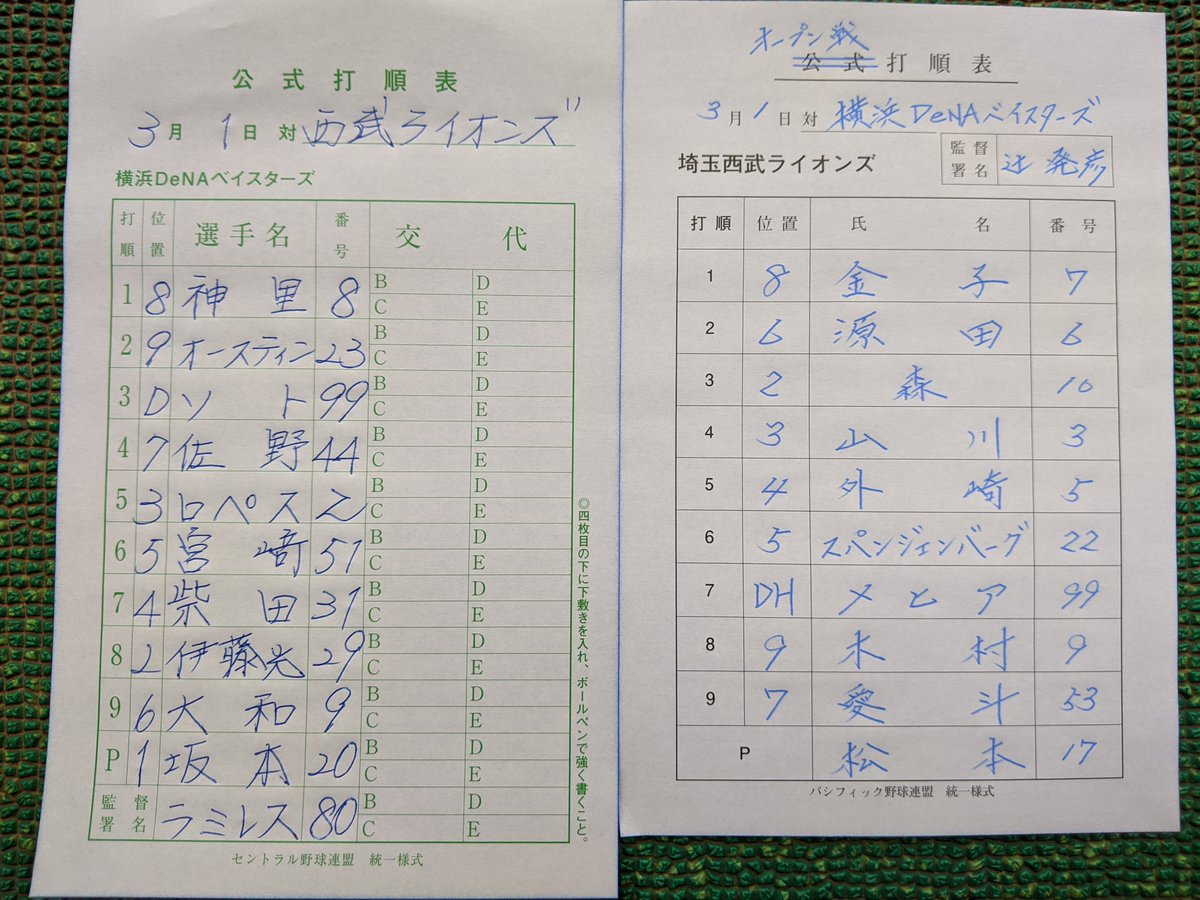 公式打順表
3月 1日 対 西武ライオンズ
横浜DeNAベイスターズ
打順 位置 選手名 番号 交代
1 8 神里 8 B D C E
2 9 オースティン 23 B D C E
3 D ソト 99 B D C E
4 7 佐野 44 B D C E
5 3 ロペス 2 B D C E
6 5 宮﨑 51 B D C E
7 4 柴田 31 B D C E
8 2 伊藤光 29 B D C E
9 6 大和 9 B D C E
P 1 坂本 20 B D C E
監督署名 ラミレス 80 B D C E
セントラル野球連盟 統一様式
◎四枚目の下に下敷きを入れ、ボールペンで強く書くこと。
オープン戦
公式打順表
3月 1日 対 横浜DeNAベイスターズ
埼玉西武ライオンズ
監督署名 辻発彦
打順 位置 氏名 番号
1 8 金子 7
2 6 源田 6
3 2 森 10
4 3 山川 3
5 4 外崎 5
6 5 スパンジェンバーグ 22
7 DH メヒア 99
8 9 木村 9
9 7 愛斗 53
P 松本 17
パシフィック野球連盟 統一様式